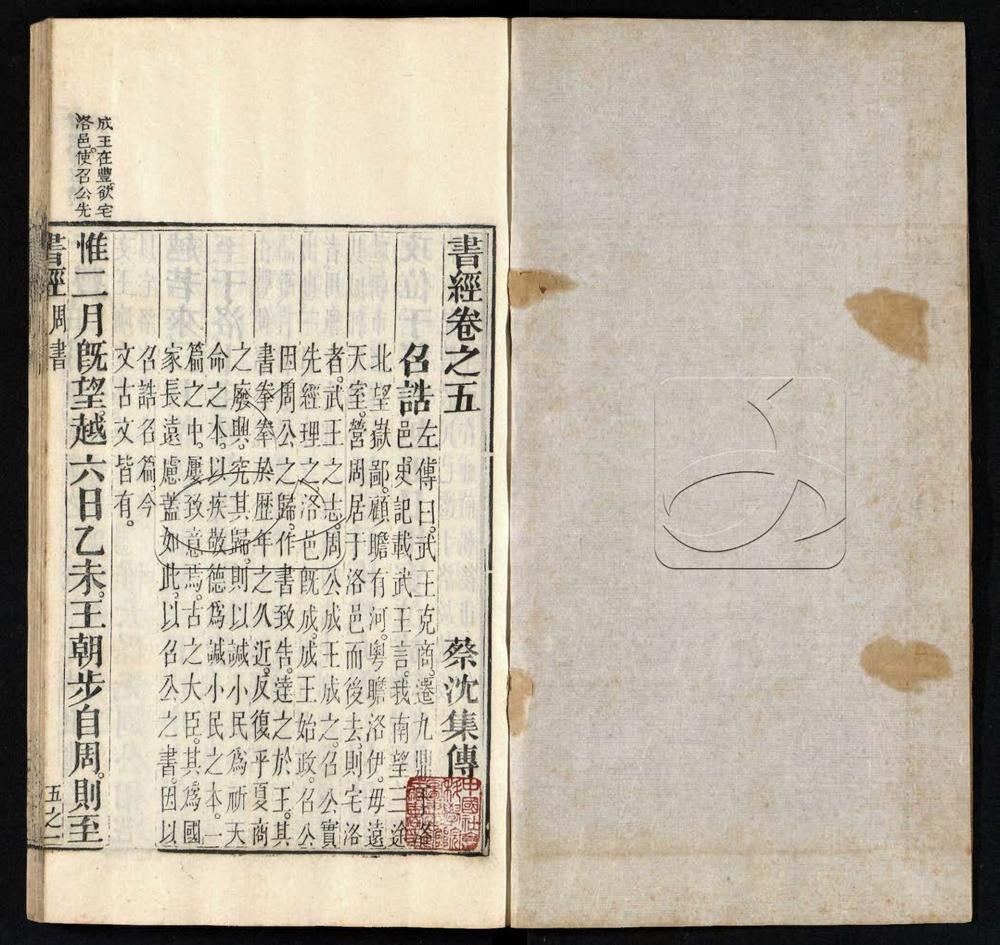 成王在豐。欲宅
洛邑。使召公先
書經卷之五
蔡沈集傳
召誥
左傳曰。武王克商。遷九鼎于洛
邑。史記載武王言。我南望三途
北望嶽鄙。顧瞻有河。粵瞻洛伊。毋遠
天室。營周居于洛邑而後去。則宅洛
者。武王之志。周公成王成之。召公實
先經理之。洛邑既成。成王始政。召公
因周公之歸。作書致告。達之於王。其
書拳拳於歷年之久近。反復乎夏商
之廢興。究其歸。則以諴小民爲祈天
命之本。以疾敬德爲諴小民之本。一
篇之中。屢致意焉。古之大臣。其爲國
家長遠慮蓋如此。以召公之書。因以
召誥名篇。今
文古文皆有。
惟二月既望。越六日乙未。王朝步自周。則至
書經 周書
五之一